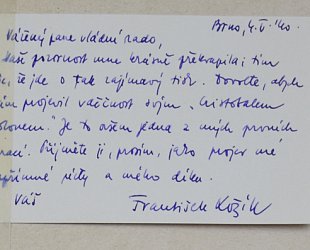 Brno, 4. V. 40.
Vážený pane vládní rado,
Vaše pozornost mne krásně překvapila; tím
že jde o tak zajímavý tisk. Dovolte, abych
projevil vděčnost svým „Cristobalem
Colonem." Je to ovšem jedna z mých prvních
prací. Přijměte ji, prosím, jako projev mé
upřímné úcty a mého díku.
Váš
František Kožík